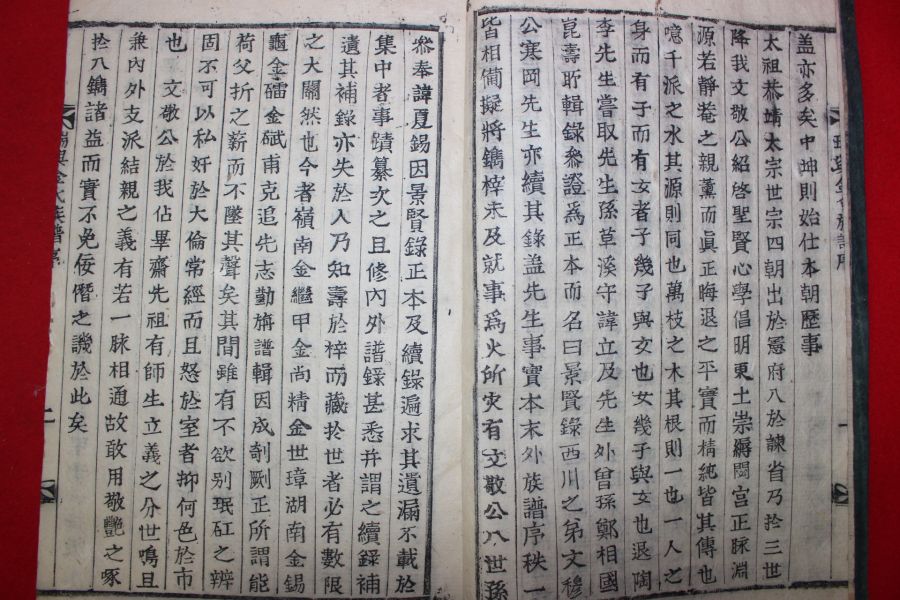 盖亦多矣中坤則始仕本朝歷事
太祖恭靖太宗世宗四朝出於憲府入於諫省乃扵三世
降我文敬公紹啓聖賢心學倡明東土崇縟閟宮正脉淵
源若靜菴之親薰而眞正晦退之平實而精純皆其傳也
噫千派之水其源則同也萬枝之木其根則一也一人之
身而有子而有女者子幾子與女也女幾子與女也退陶
李先生嘗取先生孫草溪守諱立及先生外曾孫鄭相國
崑壽所輯錄叅證爲正本而名曰景賢錄西川之弟文穆
公寒岡先生亦續其錄盖先生事實本末外族譜序秩一
皆相備擬將鐫梓未及就事爲火所灾有文敬公八世孫
叅奉諱夏錫因景賢錄正本及續錄遍求其遺漏不載於
集中者事蹟纂次之且修內外譜錄甚悉并謂之續錄補
遺其補錄亦失於人乃知壽於梓而藏扵世者必有數限
之大關然也今者嶺南金繼甲金尚精金世璋湖南金錫
龜金礌金碔甫克追先志勤旃譜輯因成剞劂正所謂能
荷父折之薪而不墜其聲矣其間雖有不欲别珉矼之辨
固不可以私奸於大倫常經而且怒於室者抑何色於市
也 文敬公於我佔畢齋先祖有師生立義之分世鳴且
兼內外支派結親之義有若一脉相通故敢用敬艷之啄
扵八鐫諸益而實不免佞僭之譏於此矣
瑞興金氏族譜序
二
瑞興金氏族譜序
一